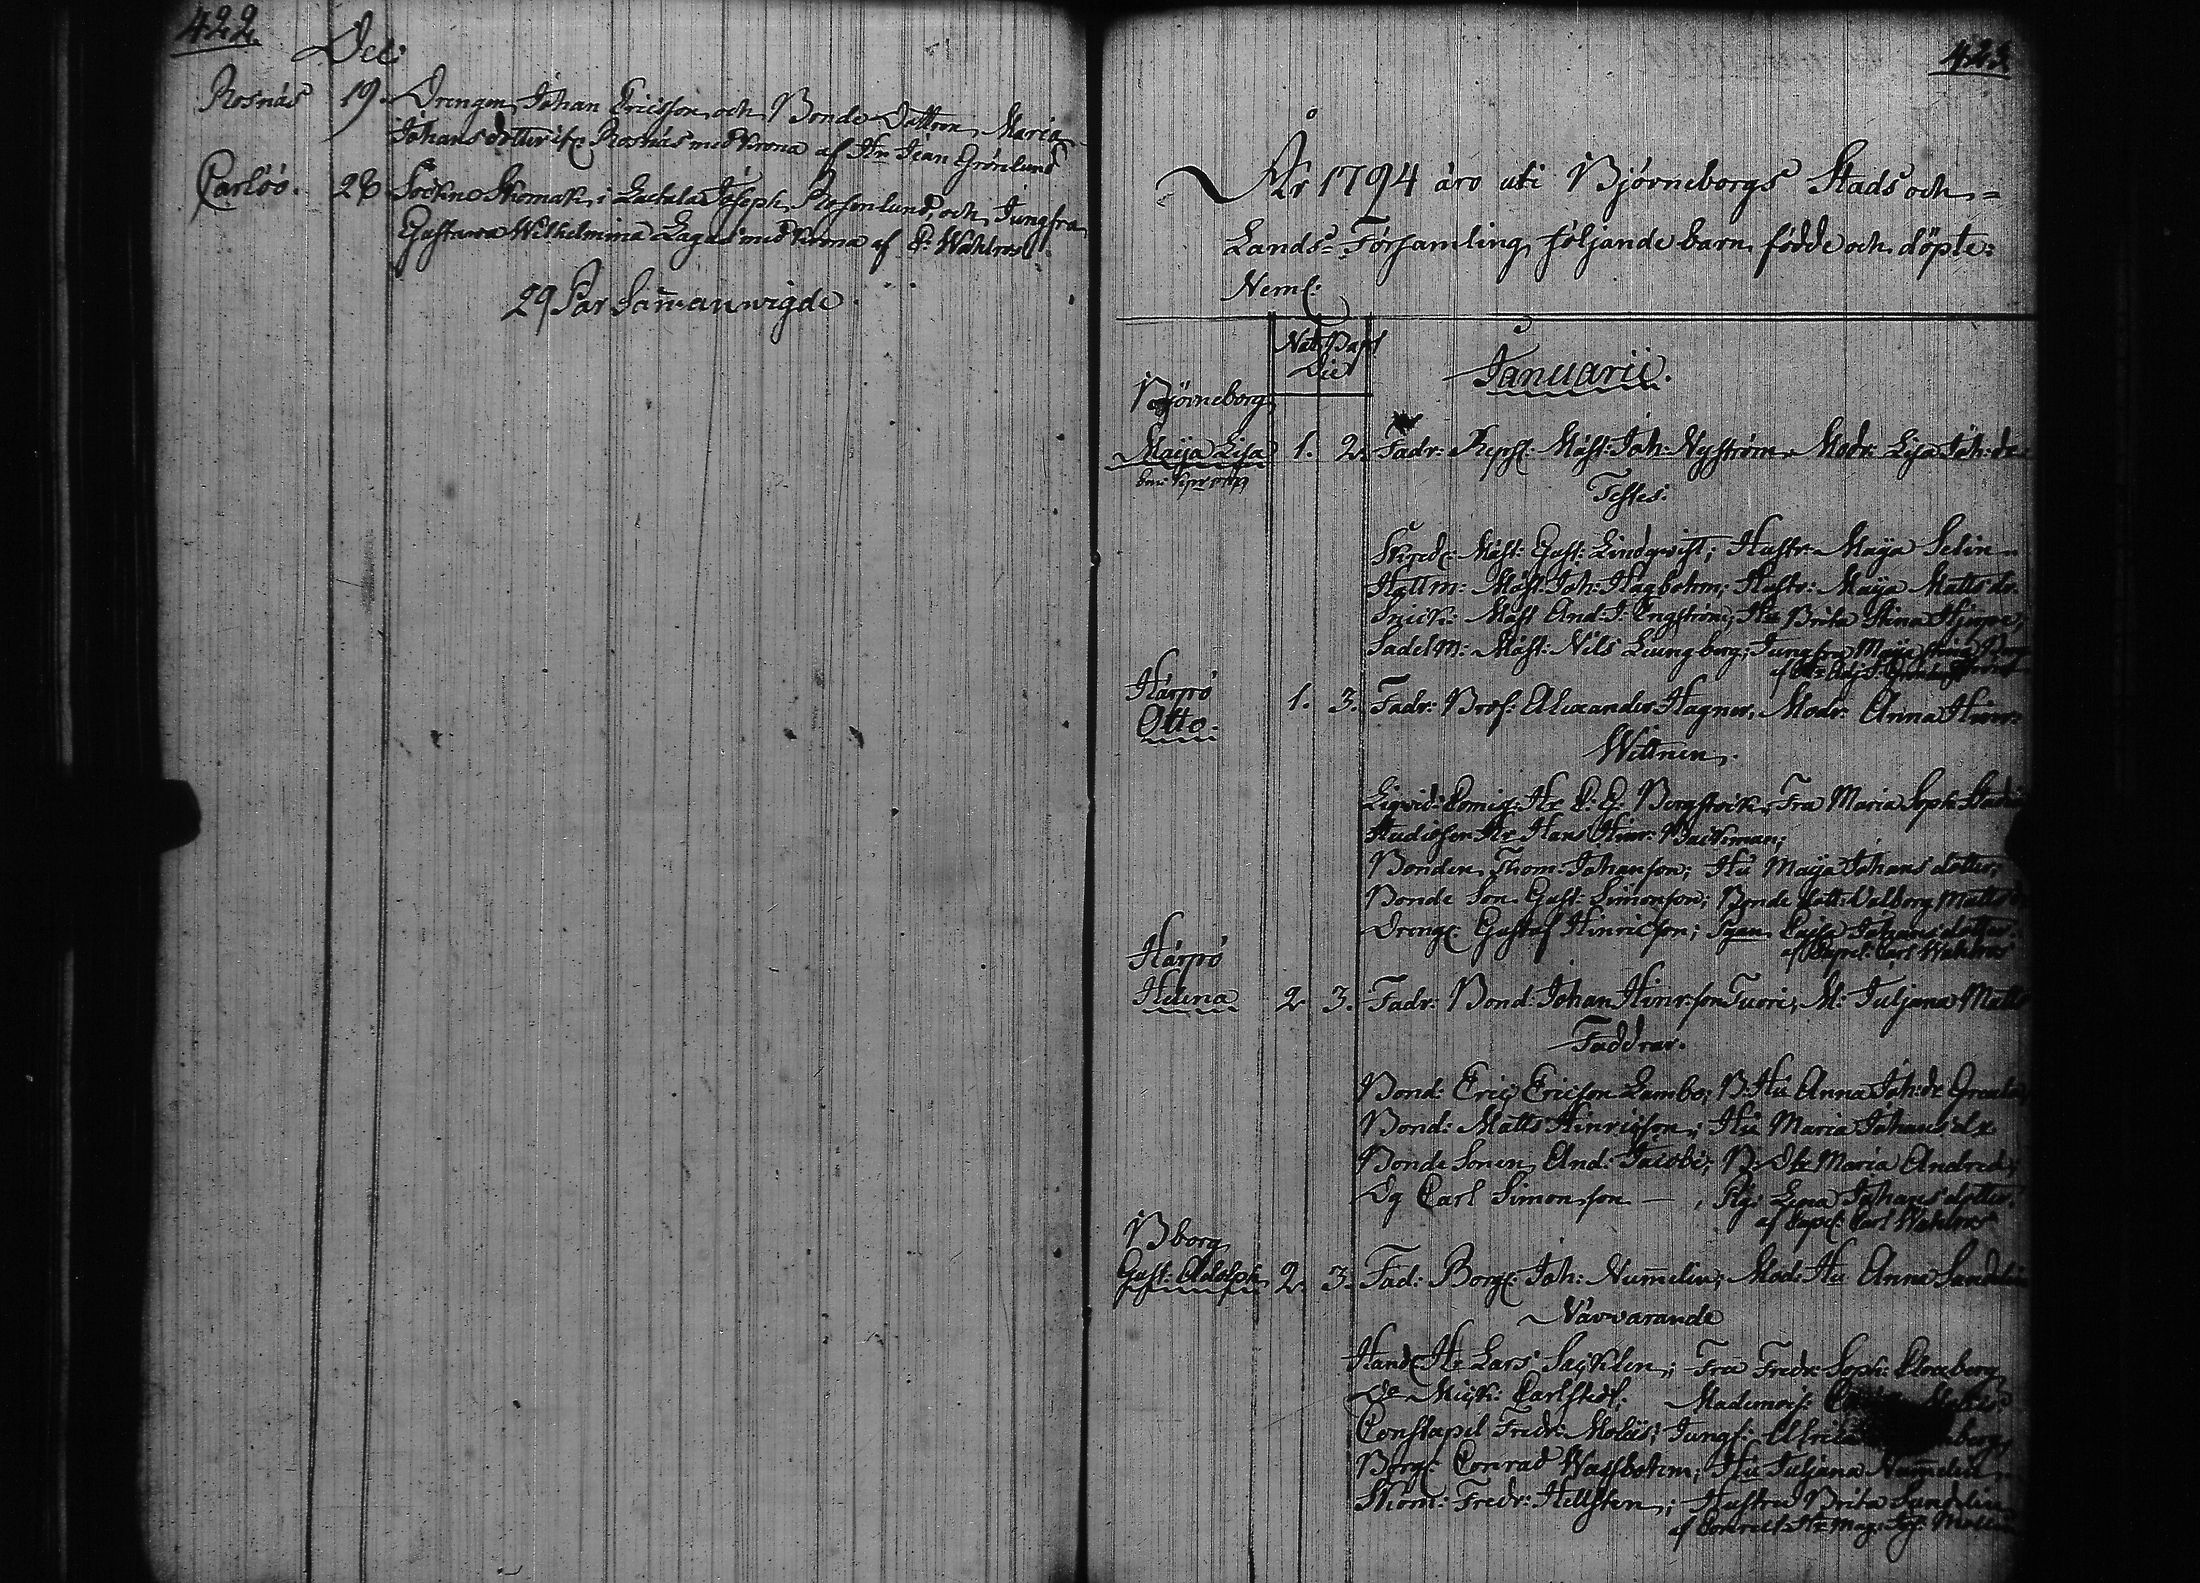 422.
Dec:
Rosnäs 19. Drengen Johan Ericsson och Bonde Dottren Maria
Johansdotter ifr: Rosnäs med Krona af Hr Jean Grönlund
Carlöö. 28 Sockne Skomak: i Lactala Joseph Rosenlund, och Jungfru
Gustava Wilhelmina Lagus med Krona af C: Wahlros.
29 Par Samanwigde
423
År 1794 äro uti Björneborgs Stads och
Lands Församling följande barn födde och döpte:
Neml:
Nat: Bapt
Die
Januarii.
Björneborg
Maija Lisa 1. 2. Fadr: Repsl: Mäst: Joh: Nyström, Modr: Lisa Joh:dr
Testes:
Skredd: Mäst: Gust: Lindqvist; Hustr: Maija Selin
Hattm: Mäst: Joh: Hagbohm; Hustr: Maija Matts dr
Snick: Mäst And: J: Engström; Hu Brita Stina
Sadelm: Mäst: Nils Liungberg; Jungfru Maija Stina
Härpö
Otto. 1. 3. Fadr: Alexander Hagner, Modr: Anna Hinr:
Wittnen.
Hr C: G: Bergstrik, Fru Maria Soph:
Hr Hans Hinr: Backman;
Bonden Thom: Johanson; Hu Maija Johansdotter;
Bonde Son Gust: Simonson; Bonde dott: Valborg Matts
Dreng: Gustaf Hinricson; Johansdotter.
af Capel: Carl Wahlros
Härpö
Helena 2. 3. Fadr: Bond: Johan Hinr:son Tuori, M: Juljana Matts
Faddrar.
Bond: Eric Ericson Lambo; B: Hu Anna Joh:dr
Bond: Matts Hinricson; Hu Maria Johans dr
Bonde Sonen And: Jacobs; B: dtr Maria Andred;
Dg Carl Simonson — ; Pig: Lena Johansdotter.
af Capel: Carl Wahlros
Bborg
Gust: Adolph 2. 3. Fad: Borg: Joh: Numelin; Mod: Hu Anna Sandelin
Närvarande
Hand: Hr Lars Sacklen; Fru Fredr: Soph:
Do Mich: Carlstedt; Mademois:
Constapel Fredr: Moliis; Jungf: Ulrica
Borg: Conrad Wassbohm; Hu Juljana Numelin
Skom: Fredr: Hellsten; Hustru Brita Sandelin